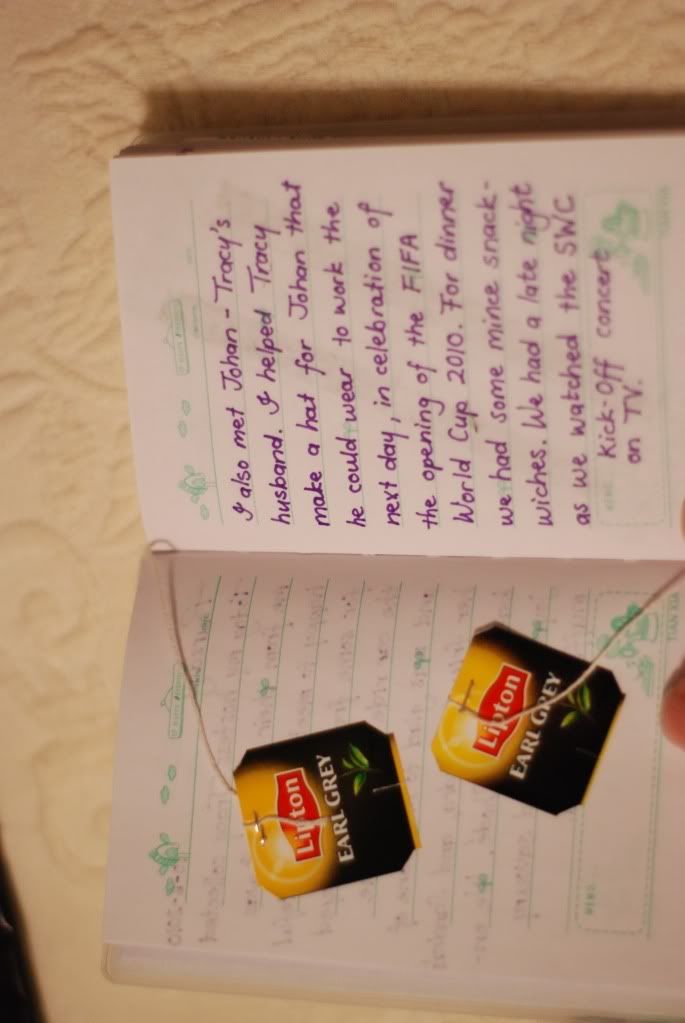 I also met Johan - Tracy's
husband. I helped Tracy
make a hat for Johan that
he could wear to work the
next day, in celebration of
the opening of the FIFA
World Cup 2010. For dinner
we had some mince snack-
wiches. We had a late night
as we watched the SWC
Kick-Off concert
on TV.
Lipton
EARL GREY
Lipton
EARL GREY
MEMO
TIAN XIA